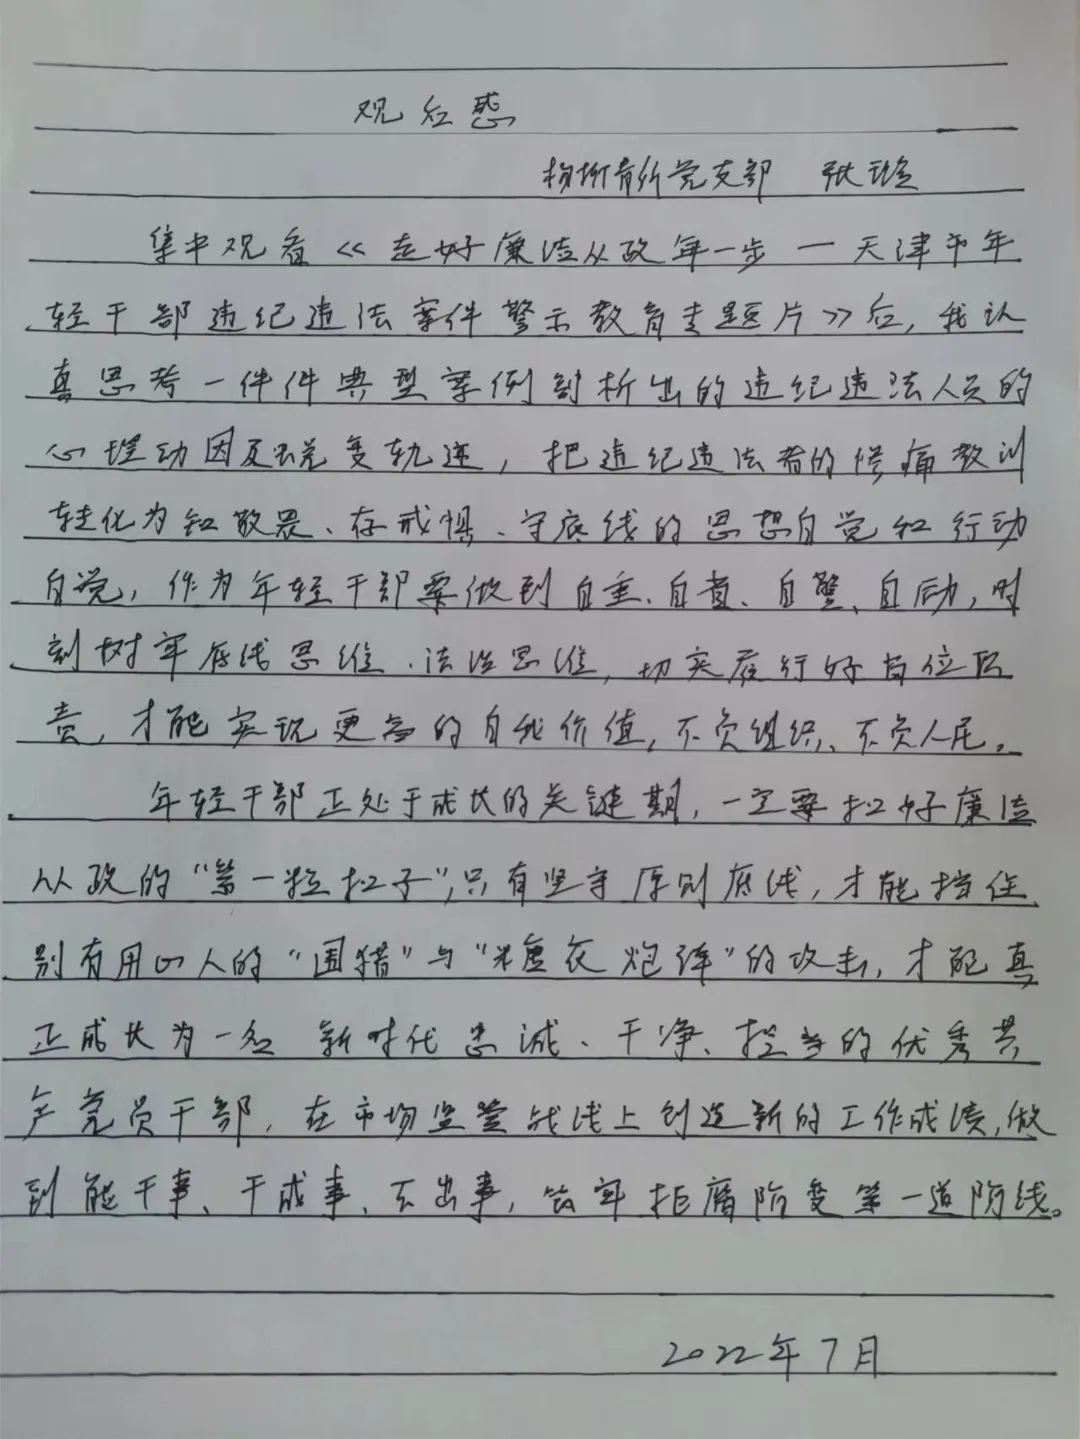 观后感
杨柳青所党支部 张璇
集中观看《走好廉洁从政第一步一天津市年
轻干部违纪违法案件警示教育专题片》后，我认
真思考一件件典型案例剖析出的违纪违法人员的
心理动因及蜕变轨迹，把违纪违法者的惨痛教训
转化为知敬畏、存戒惧、守底线的思想自觉和行动
自觉，作为年轻干部要做到自重、自省、自警、自励，时
刻树牢底线思维、法治思维，切实履行好岗位职
责，才能实现更高的自我价值，不负组织、不负人民。
年轻干部正处于成长的关键期，一定要扣好廉洁
从政的“第一粒扣子”，只有坚守原则底线，才能挡住
别有用心人的“围猎”与“糖衣炮弹”的攻击，才能真
正成长为一名新时代忠诚、干净、担当的优秀共
产党员干部，在市场监管战线上创造新的工作成绩，做
到能干事、干成事、不出事，筑牢拒腐防变第一道防线。
2022年7月